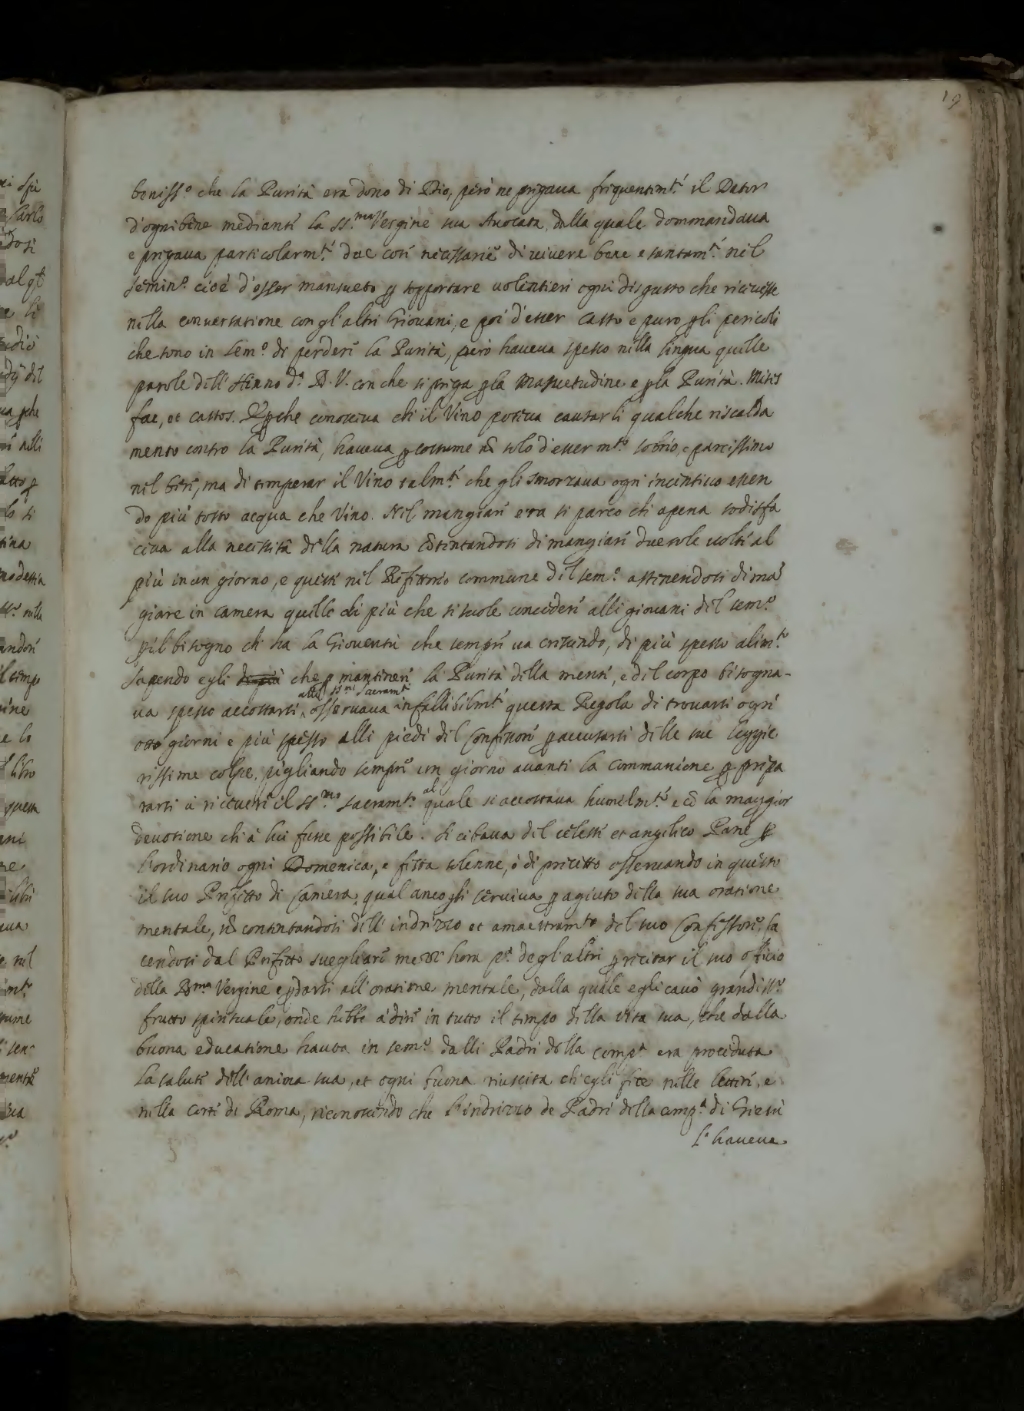 19
beniss.º che la Purità era dono di Dio, però ne pregaua frequentem.te il Dator
d'ogni bene mediante la SS.ma Vergine sua Auocata, dalla quale dommandaua
e pregaua particolarm.te due cose necessarie di uiuere bene e santam.te nel
semin.º cioè d'esser mansueto p sopportare uolentieri ogni disgusto che riceuesse
nella conuersatione con gl'altri Giouani, e poi d'esser casto e puro p gli pericoli
che sono in sem.º di perdere la Purità, però haueua spesso nella lingua quelle
parole dell'Hinno d.ª B. V. con che si prega p la mansuetudine e p la Purità. Mites
fac, et castos. E p che conosceua che il Vino poteua causarli qualche riscalda
mento contro la Purità, haueua p costume nõ solo d'esser m.to sobrio, e parcissimo
nel bere, ma di temperar il Vino talm.te che gli smorzaua ogni incentiuo essen
do più tosto acqua che Vino. Nel mangiare era si parco che apena sodisfa
ceua alla necessità della natura cõtentandosi di mangiare due sole uolte al
più in un giorno, e queste nel Refettorio commune del sem.º astinendosi di mã
giare in camera quelle di più che si suole concedere alli giouani del sem.º
p il bisogno che ha la Giouentù che sempre ua crescendo, di più spesso alim.to
Sapendo egli che p mantinere la Purità della mente, e del corpo bisogna-
ua spesso accostarsi alli SS.mi Sacram.ti osseruaua infallibilm.te questa Regola di trouarsi ogni
otto giorni e più spesso alli piedi del Confessore p accusarsi delle sue leggie
rissime colpe, pigliando sempre un giorno auanti la communione p prepa
rarsi à riceuere il SS.mo Sacram.to al quale si accostaua humilm.te e cõ la maggior
deuotione che à lui fusse possibile. Si cibaua del celeste et angelico Pane p
l'ordinario ogni Domenica, e festa solenne, ò di precetto osseruando in questo
il suo Prefetto di Camera, qual anco gli seruiua p agiuto della sua oratione
mentale, nõ contentandosi dell'indrizzo et amaestram.to del suo Confessore, fa
cendosi dal Prefetto suegliare mezz'hora p.ª degl'altri p recitar il suo officio
della B.ma Vergine e p darsi all'oratione mentale, dalla quale egli cauò grandiss.º
frutto spirituale, onde hebbe à dire in tutto il tempo della uita sua, che dalla
buona educatione hauta in sem.º dalli Padri della comp.ª era proceduta
la salute dell'anima sua, et ogni buona riuscita ch'egli fece nelle lettere, e
nella corte di Roma, riconoscendo che l'indrizzo de Padri della comp.ª di Giesù
l'haueua